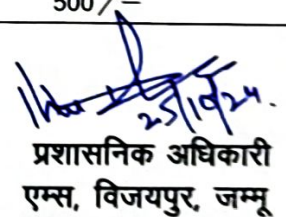 500/-
25/10/24.
प्रशासनिक अधिकारी
एम्स, विजयपुर, जम्मू